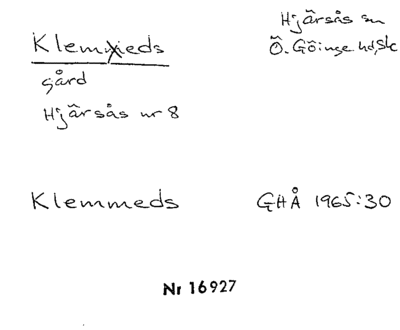 Klemmeds
Hjärsås sn
Ö. Göinge hd, Sk
gård
Hjärsås nr 8
Klemmeds
GHÅ 1965:30
Nr 16927